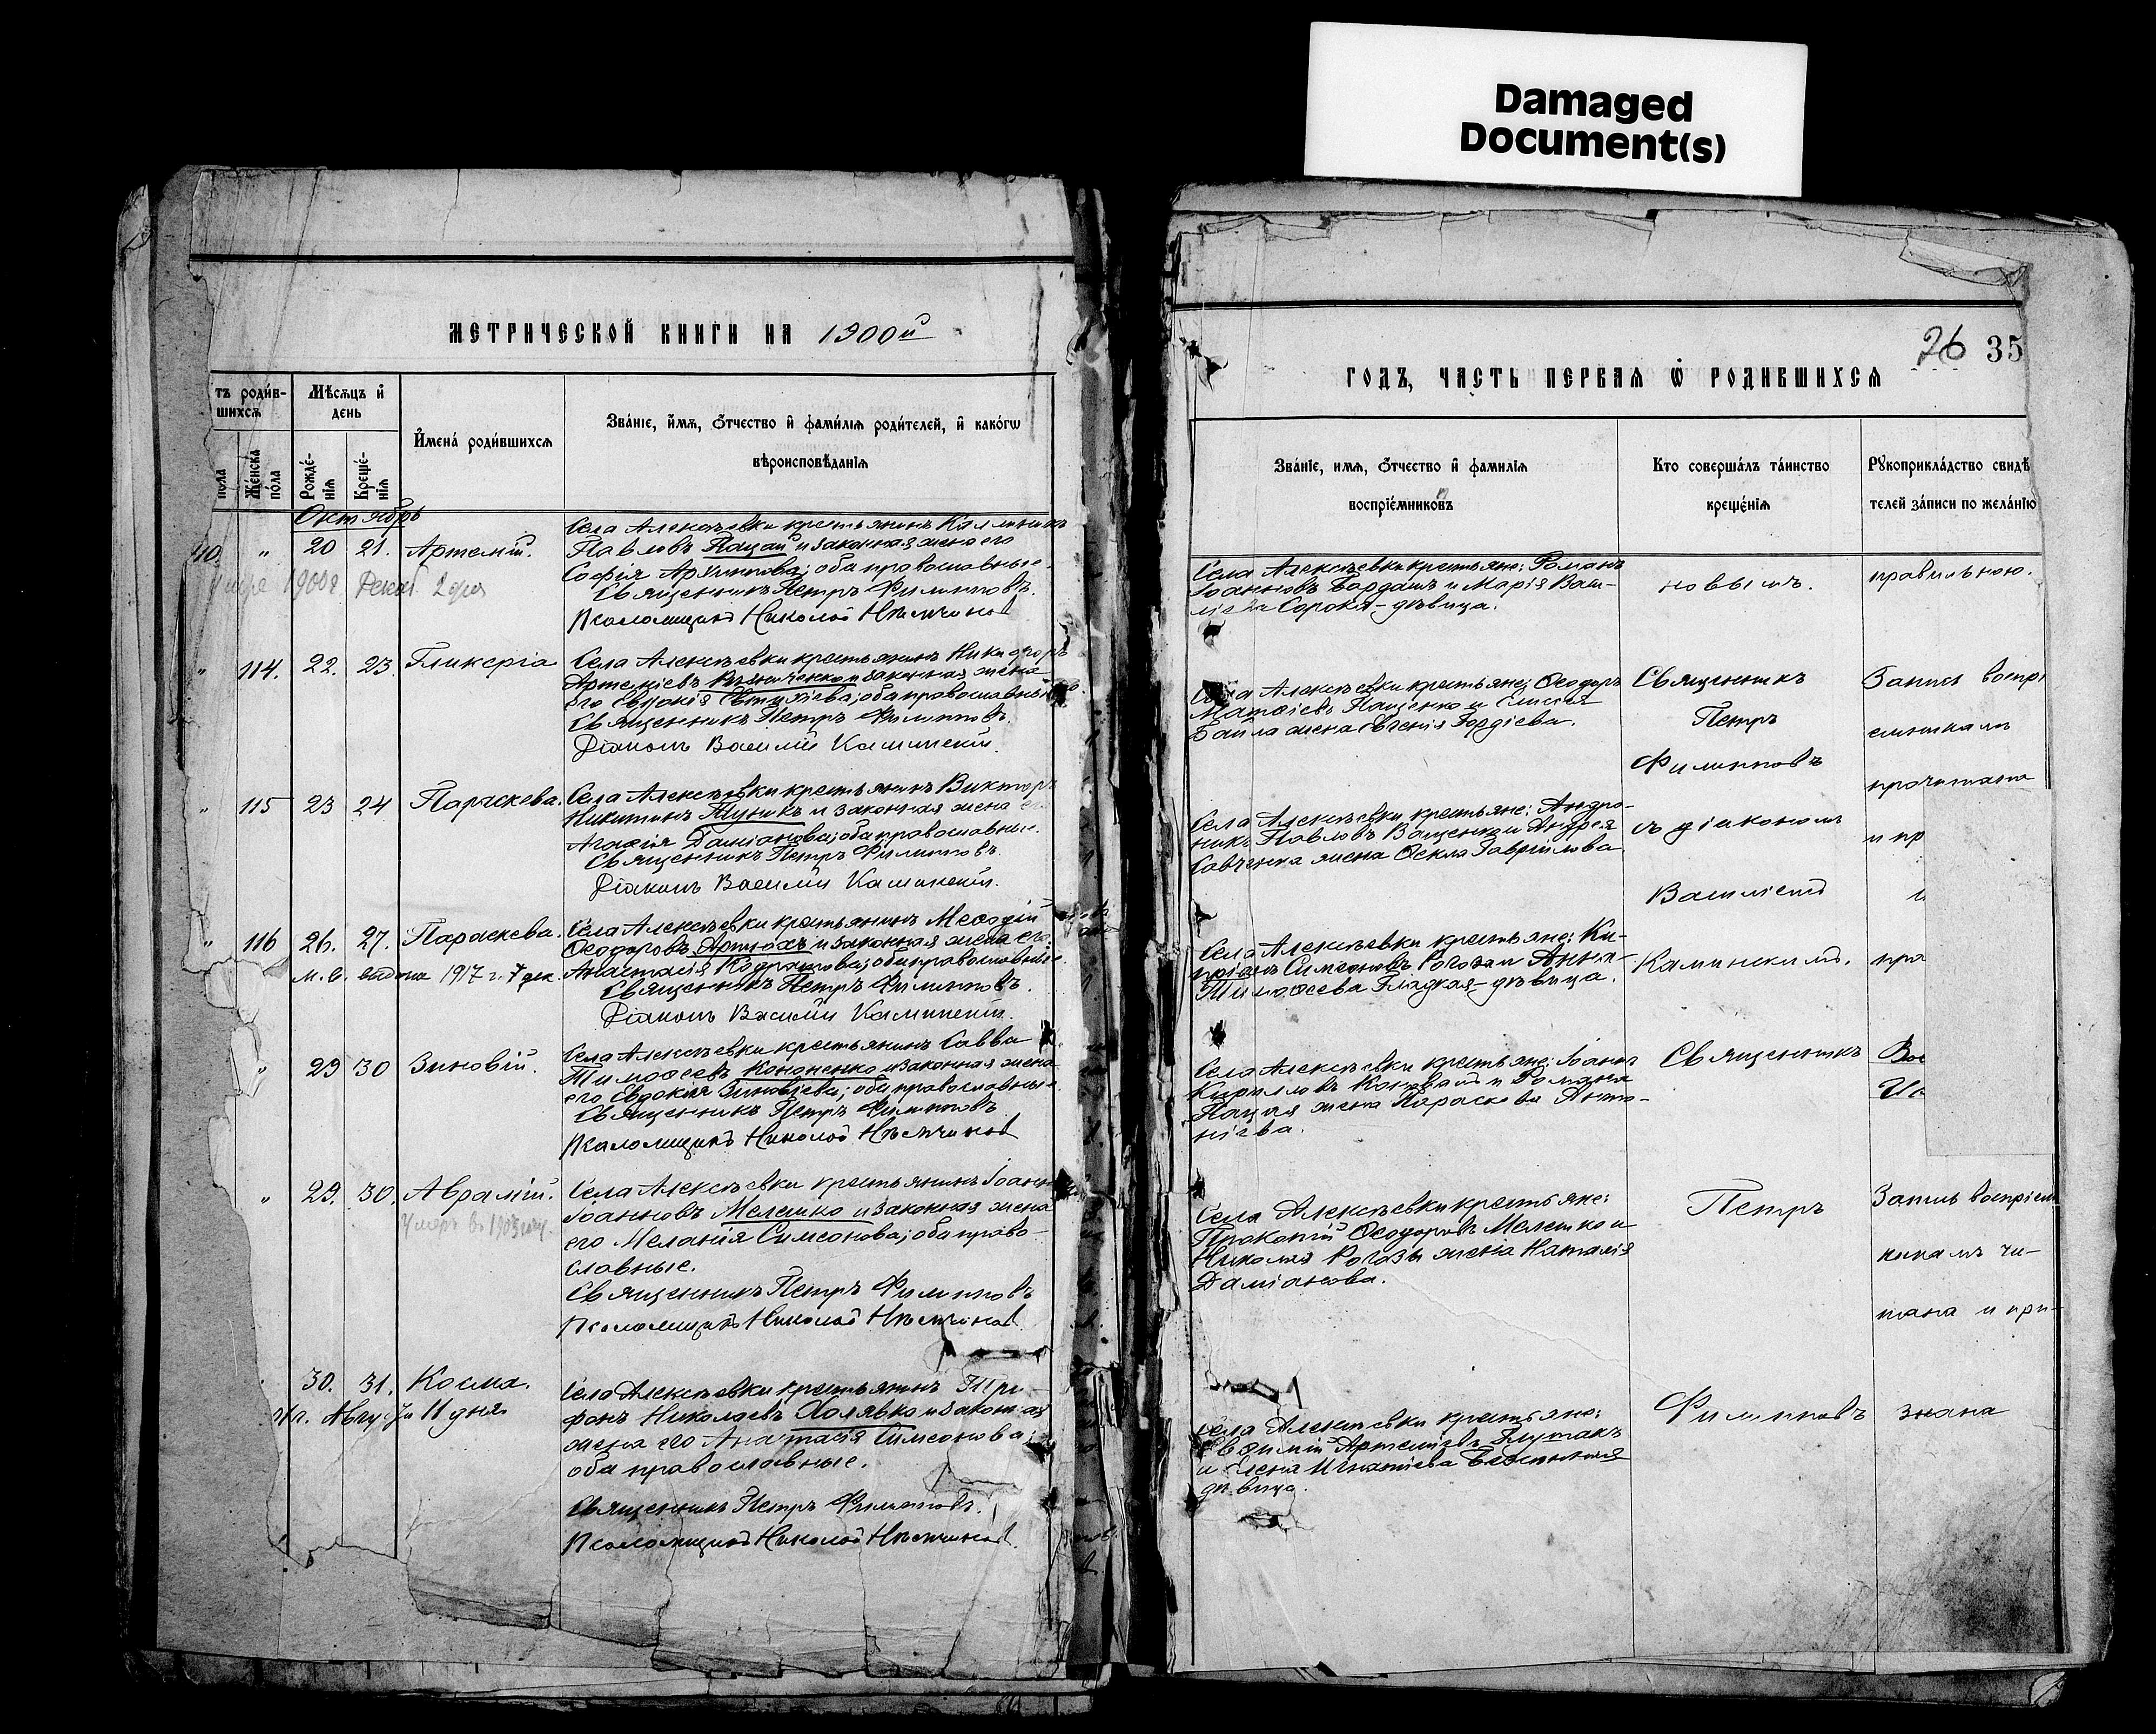 Damaged
Document(s)
МЕТРИЧЕСКОЙ КНИГИ НА 1900й
тъ роди́в-
шихсѧ
Мѣсѧцъ и҆
день
И҆мена̀ роди́вшихсѧ
Зва́нїе, и҆́мѧ, ѻ҆́тчество и҆ фами́лїѧ роди́телей, и҆ како́гѡ
вѣроисповѣ́данїѧ
пола
Же́нска
по́ла
Рожде́-
нїѧ
Креще́-
нїѧ
Октябрь
40. " 20 21. Артемій. Села Алексѣевки крестьянинъ
Павловъ Пацай и законная жена его
София Архиппова; оба православные.
1900 г. Декаб. 2 дня
Священникъ Петръ Филипповъ.
Псаломщикъ Николай Нѣмчинов
" 114. 22. 23. Гликерія Села Алексѣевки крестьянинъ Никифоръ
Артеміевъ и законная жена
его Евдокія; оба православные.
Священникъ Петръ Филипповъ.
Діаконъ Василій Каминскій.
" 115 23 24 Параскева. Села Алексѣевки крестьянинъ Викторъ
Никитинъ и законная жена
Агафія Даміанова; оба православные.
Священникъ Петръ Филипповъ.
Діаконъ Василій Каминскій.
" 116 26. 27. Параскева. Села Алексѣевки крестьянинъ Меѳодій
Ѳеодоровъ Артюхъ и законная жена его
М. С. выдана 1917 г. 7 дек. Анастасія; оба православные.
Священникъ Петръ Филипповъ.
Діаконъ Василій Каминскій.
" 29 30 Зиновій. Села Алексѣевки крестьянинъ Савва
Тимоѳеевъ Кононенко и законная жена
его Евдокія Зиновіева; оба православные.
Священникъ Петръ Филипповъ
Псаломщикъ Николай Нѣмчинов
" 29. 30. Аврамій. Села Алексѣевки крестьянинъ Іоаннъ
Іоанновъ Мелешко и законная жена
Умеръ въ
его Меланія Симеонова; оба право-
славные.
Священникъ Петръ Филипповъ
Псаломщикъ Николай Нѣмчинов
30. 31. Косма. Села Алексѣевки крестьянинъ Три-
11 дня фонъ Николаевъ Холявко и законная
жена его Анастасія Симеонова;
оба православные.
Священникъ Петръ Филипповъ.
Псаломщикъ Николай Нѣмчинов
26 35
ГОДЪ, ЧАСТЬ ПЕРВАѦ Ѡ РОДИВШИХСѦ
Зва́нїе, имѧ, ѻ҆́тчество и҆ фамилїѧ
воспрїе́мниковъ
Кто соверша́лъ та́инство
креще́нїѧ
Рꙋкоприкла́дство свидѣ
телей за́писи по жела́нїю
Села Алексѣевки крестьяне: Романъ
Іоанновъ Бордашъ и Марія
Сорока - дѣвица.
новымъ.
правильною.
Села Алексѣевки крестьяне: Ѳеодоръ
Матѳіевъ Пащенко и
жена Евгенія Гордіева.
Священникъ
Петръ
Филипповъ
Запись воспрі
емникам
прочитана
Села Алексѣевки крестьяне: Андро-
никъ Павловъ Ващенко и Андрея
Савченка жена Ѳекла Гавріилова
съ діакономъ
и пр
Василіемъ
Села Алексѣевки крестьяне: Ки-
пріанъ Симеоновъ Рогоза и Анна
Тимоѳеева Гладкая - дѣвица.
Каминским.
пра
Села Алексѣевки крестьяне: Іоаннъ
Кирилловъ и Романа
Пацая жена Параскева Анто-
ніева.
Священникъ
Села Алексѣевки крестьяне:
Прокопій Ѳеодоровъ Мелешко и
Николая Рогозы жена Наталія
Даміанова.
Петръ
Запись воспріем
никамъ чи-
тана и при-
Села Алексѣевки крестьяне:
Евѳимій Артеміевъ
и Елена Игнатіева
дѣвица.
Филипповъ
знана